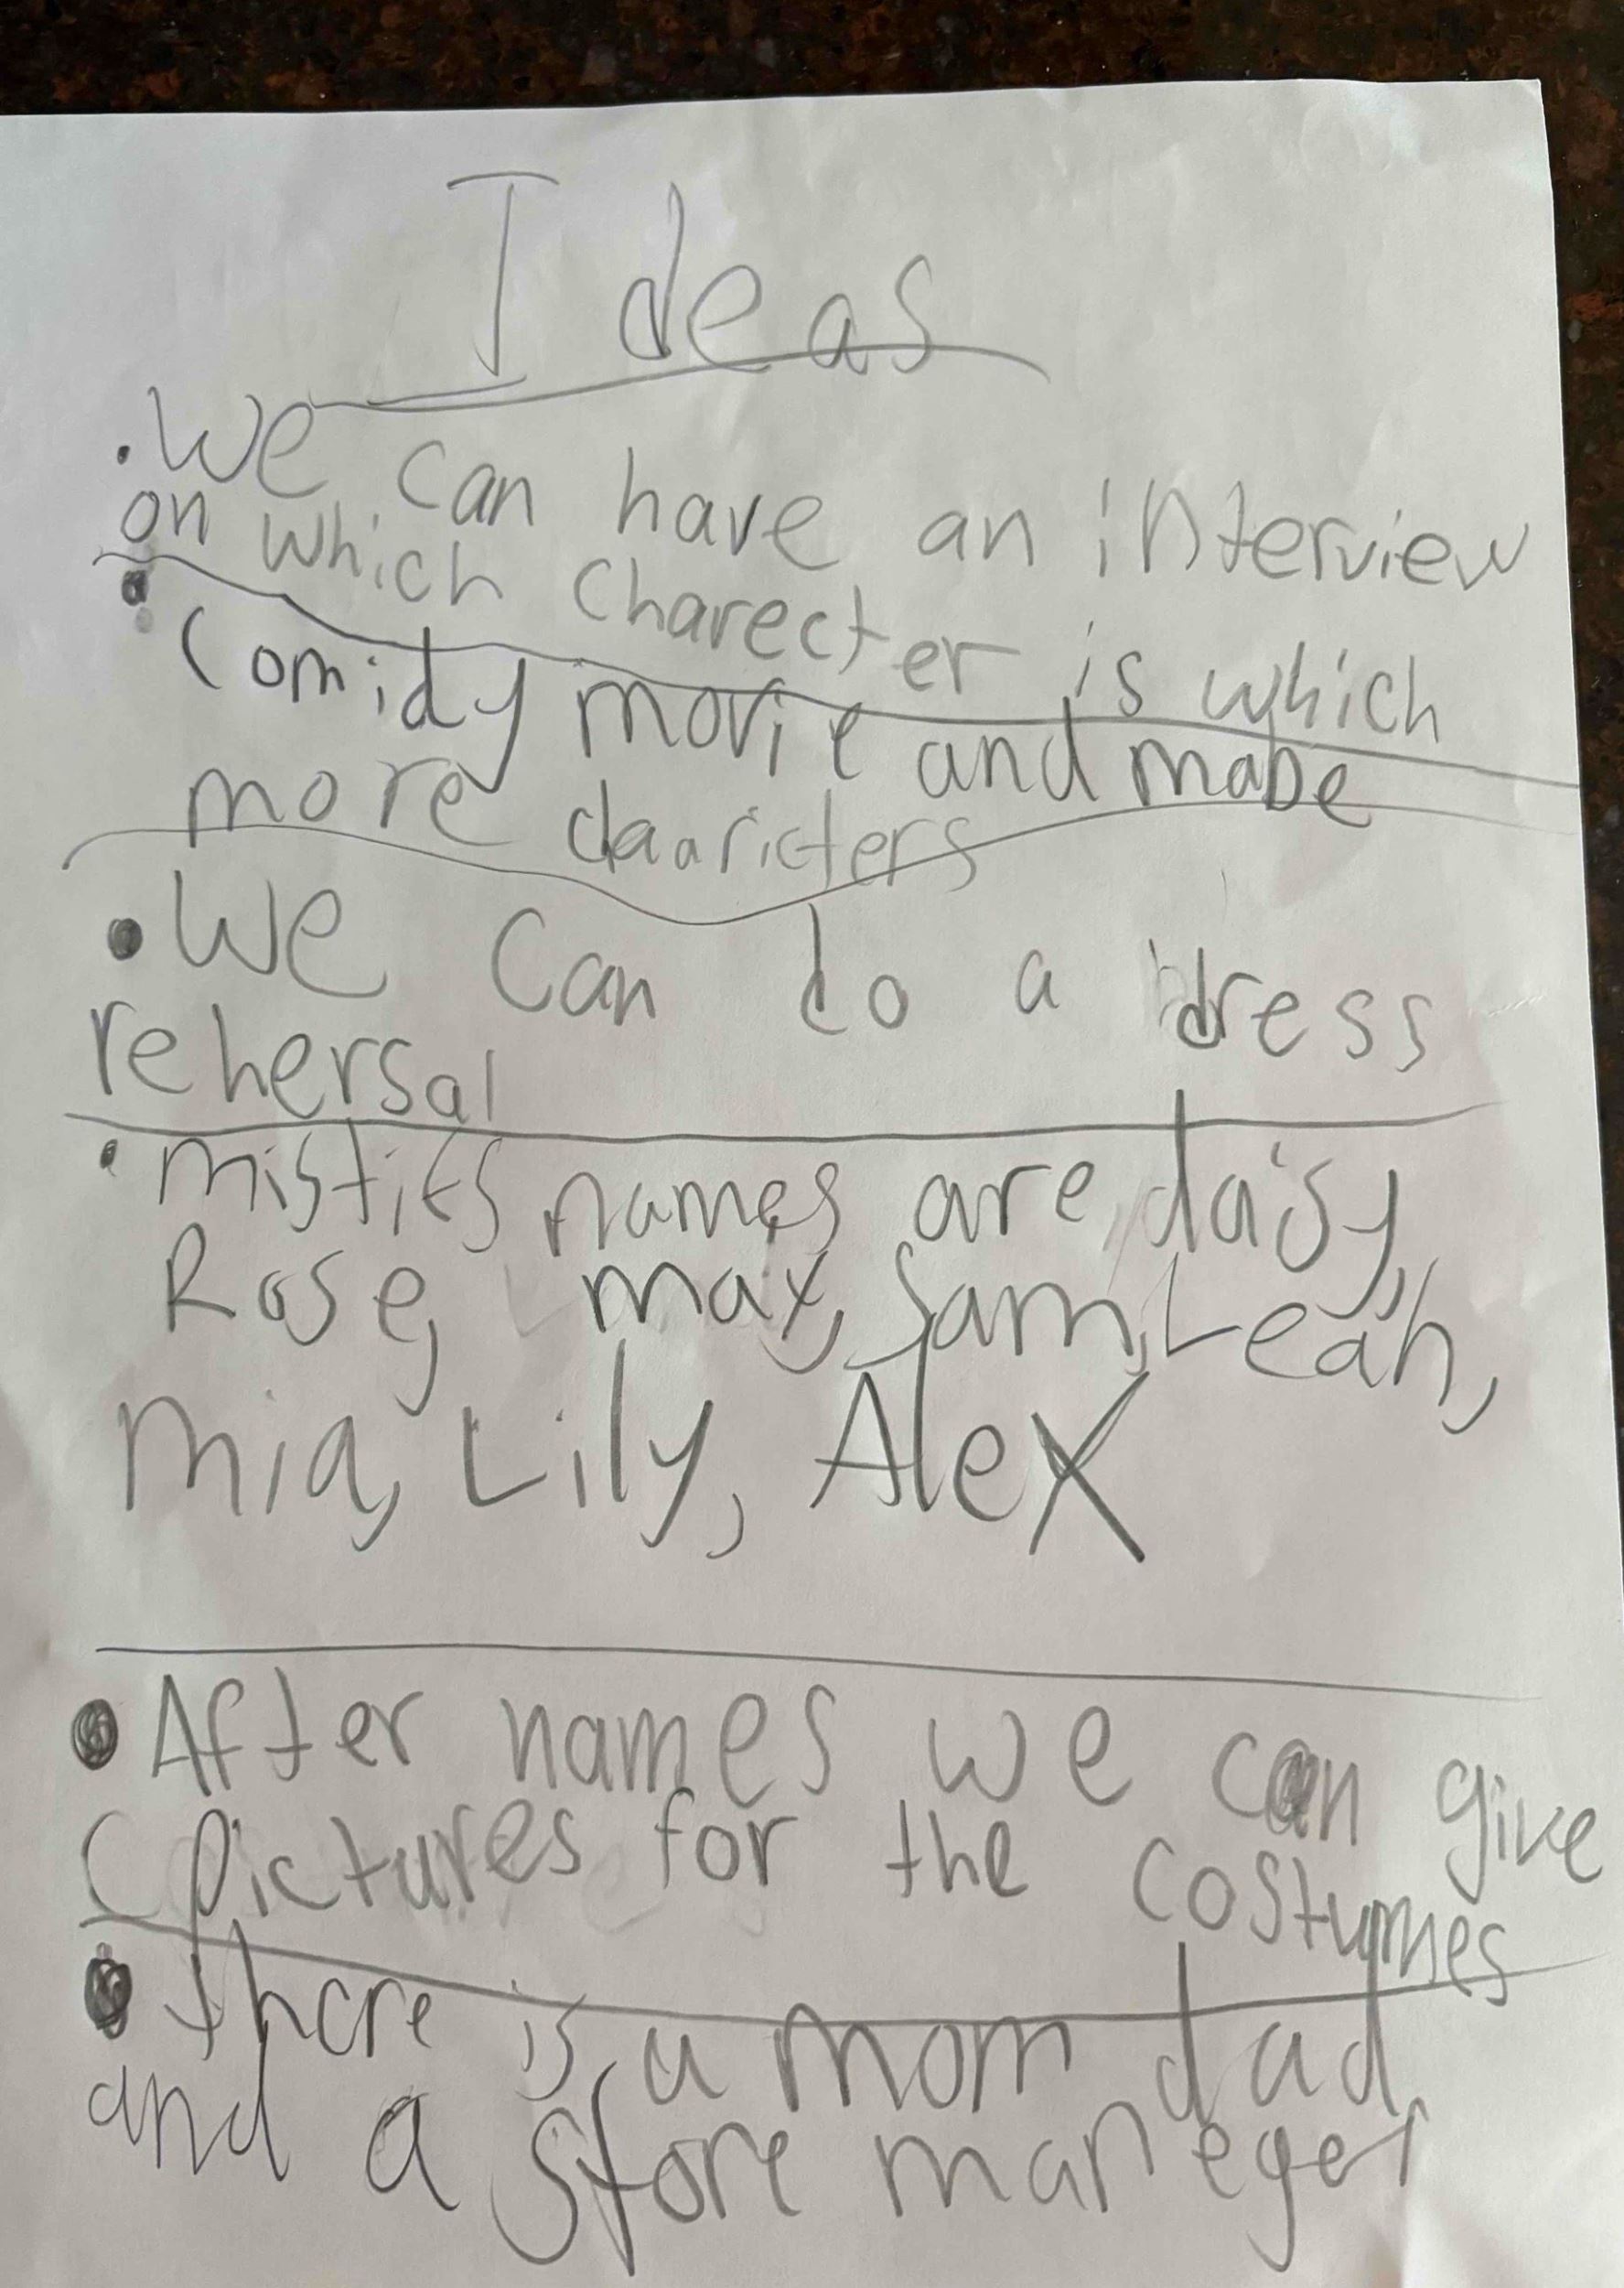 Ideas
. We can have an interview
on which charecter is which
• Comidy movie and mabe
more
• We can do a dress
rehersal
• names are daisy,
Rose, max, Sam, Leah,
mia, Lily, Alex
• After names we can give
pictures for the costumes
• there is a mom dad
and a store maneger